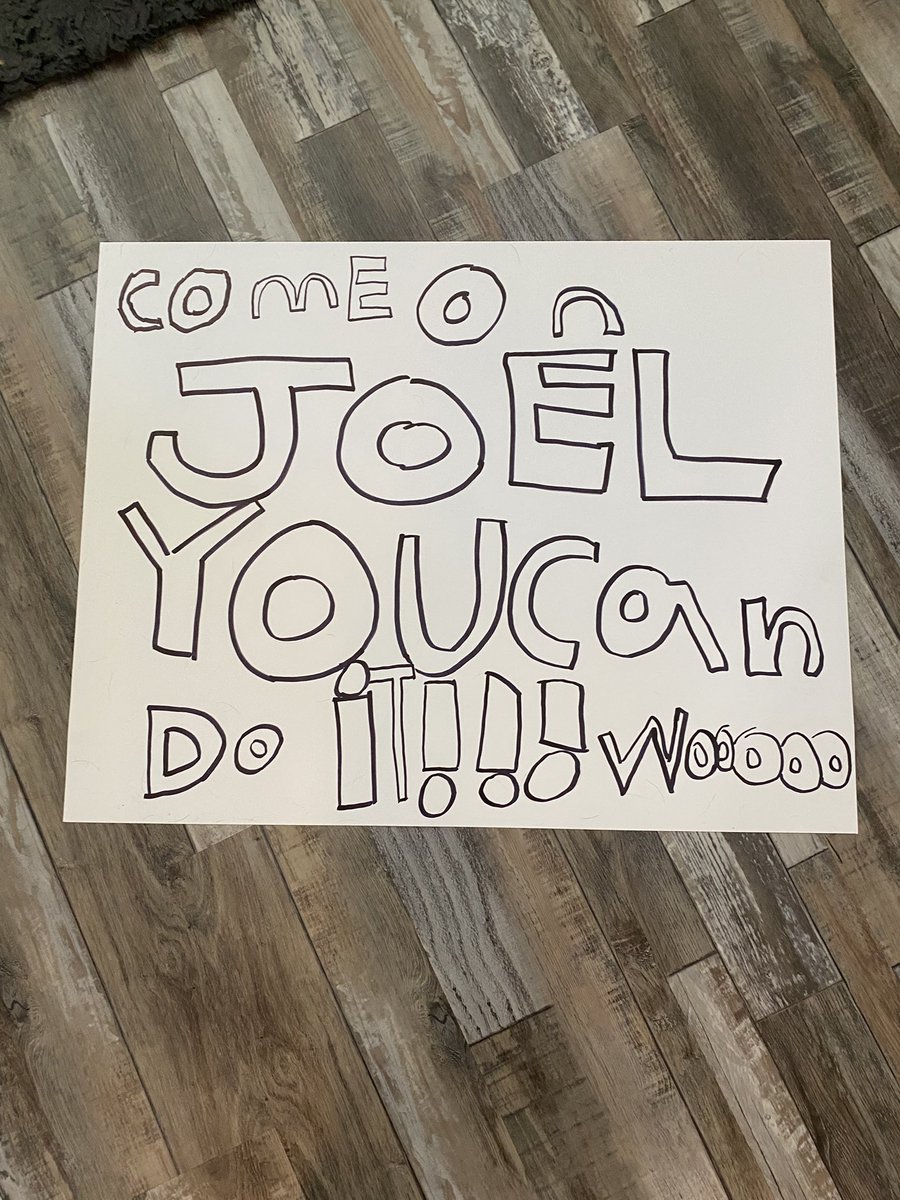 COmE On
JOEL
YOUCan
Do iT!!! Wooooo